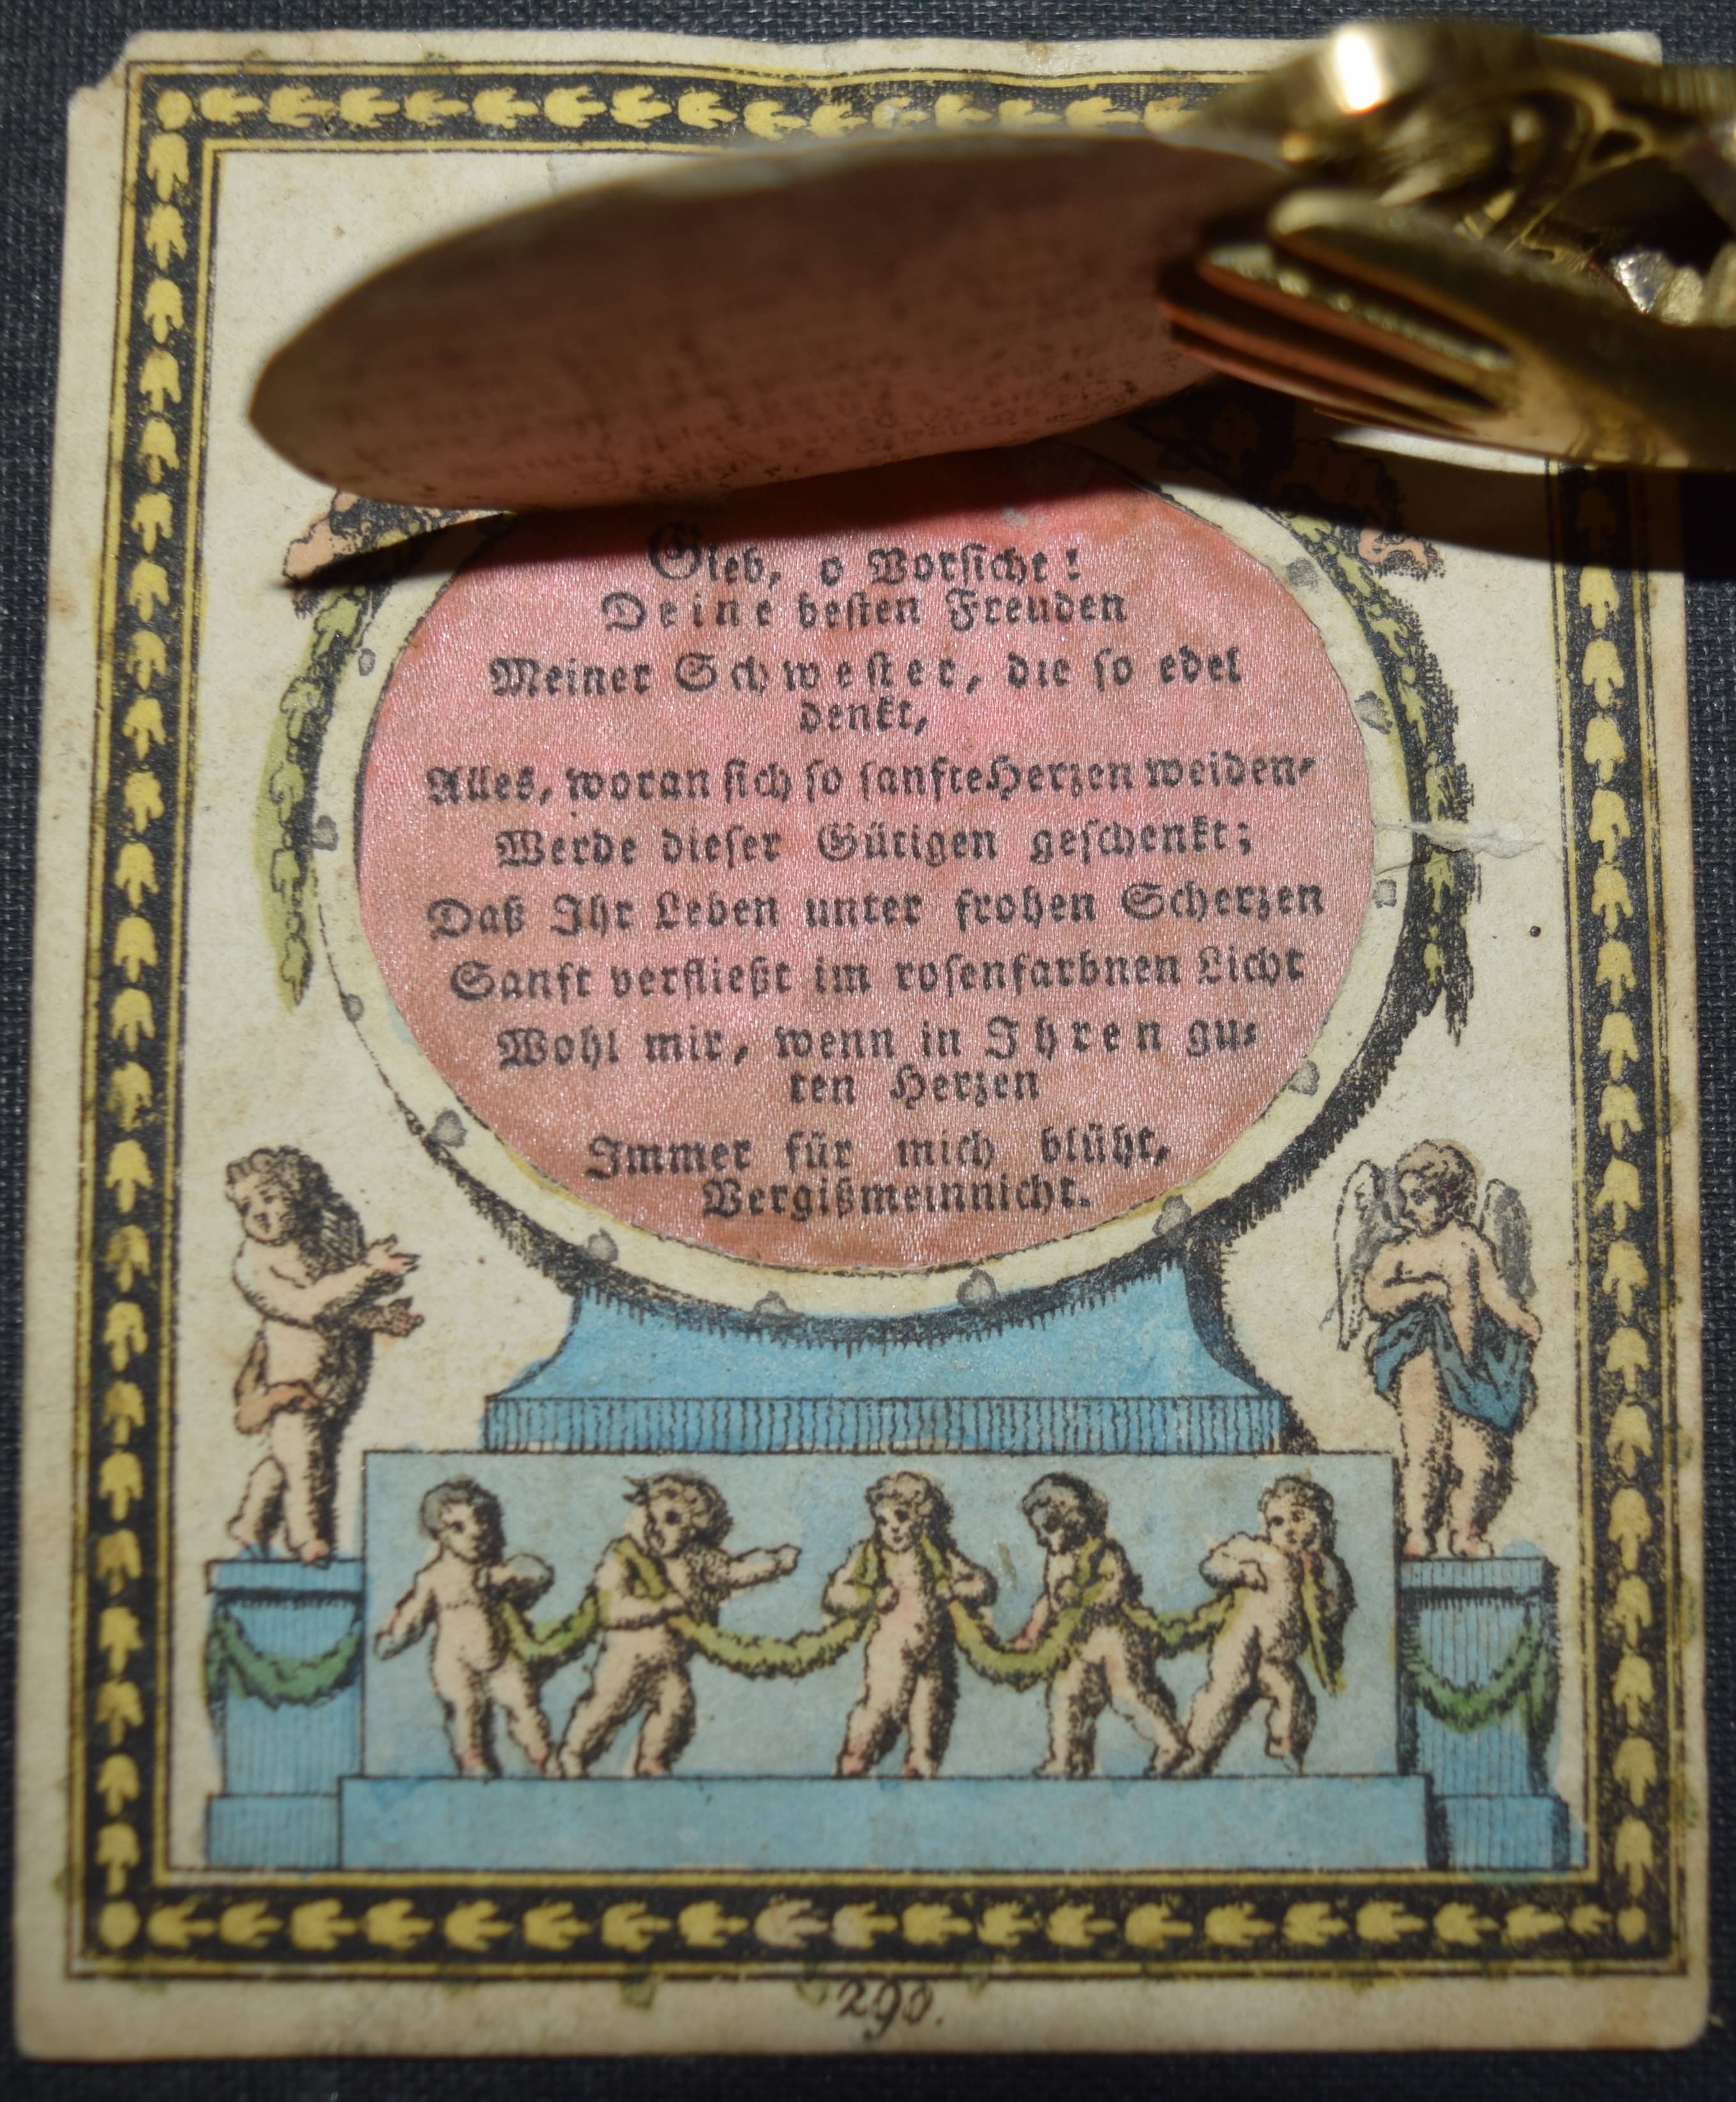 Gieb, o Vorsicht!
Deine besten Freuden
Meiner Schwester, die so edel
denkt,
Alles, woran sich so sanfte Herzen weiden-
Werde dieser Gütigen geschenkt;
Daß Ihr Leben unter frohen Scherzen
Sanft verfließt im rosenfarbnen Licht
Wohl mir, wenn in Ihren gu-
ten Herzen
Immer für mich blüht,
Vergißmeinnicht.
290.